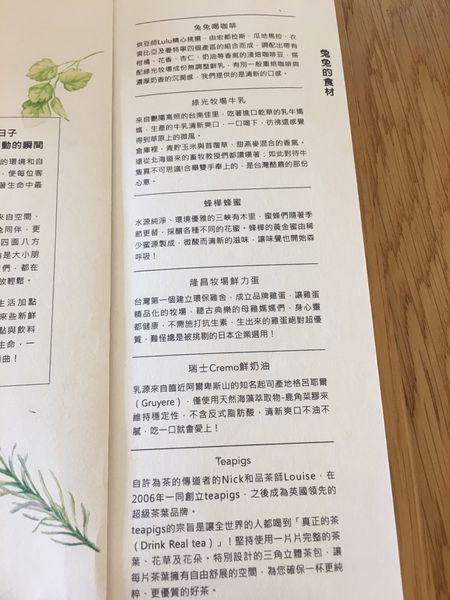 日子
動的瞬間
的環境和自
，使每位客
著生命中最
來自空間、
兔同伴，更
四面八方
是大小朋
們，都在
放輕鬆。
生活加點
來些新鮮
點與飲料
生命，一
曲！
兔兔的食材
兔兔喝咖啡
烘豆師Lulu精心挑選，由宏都拉斯、瓜地馬拉、衣
索比亞及曼特寧四個產區的組合而成，調配出帶有
柑橘、花香、杏仁、奶油等香氣的淺焙咖啡豆，搭
配綠光牧場成份無調整鮮乳，有別一般重焙咖啡與
濃厚奶香的沉澱感，我們提供的是清新的口感。
綠光牧場牛乳
來自艷陽高照的台南佳里，吃著進口乾草的乳牛媽
媽，生產的牛乳清新爽口，一口喝下，彷彿還感覺
得到草原上的微風。
倉庫裡，青貯玉米與苜蓿草、甜燕麥混合的香氣。
遠從北海道來的畜牧教授們都讚嘆著：如此對待牛
隻真不可思議!合舉雙手奉上的，是台灣酪農的那份
心意。
蜂樺蜂蜜
水源純淨、環境優雅的三峽有木里，蜜蜂們隨著季
節更替，採釀各種不同的花蜜。蜂樺的黃金蜜由稀
少蜜源製成，微酸而清新的滋味，讓味覺也開始森
呼吸！
隆昌牧場鮮力蛋
台灣第一個建立環保雞舍，成立品牌雞蛋，讓雞蛋
精品化的牧場，聽古典樂的母雞媽媽們，身心靈
都健康，不需施打抗生素，生出來的雞蛋絕對超優
質，難怪總是被挑剔的日本企業選用！
瑞士Cremo鮮奶油
乳源來自臨近阿爾卑斯山的知名起司產地格呂耶爾
（Gruyere），僅使用天然海藻萃取物-鹿角菜膠來
維持穩定性，不含反式脂肪酸，清新爽口不油不
膩，吃一口就會愛上！
Teapigs
自許為茶的傳道者的Nick和品茶師Louise，在
2006年一同創立teapigs，之後成為英國領先的
超級茶葉品牌。
teapigs的宗旨是讓全世界的人都喝到「真正的茶
（Drink Real tea）」！堅持使用一片片完整的茶
葉、花草及花朵。特別設計的三角立體茶包，讓
每片茶葉擁有自由舒展的空間，為您確保一杯更純
粹、更優質的好茶。